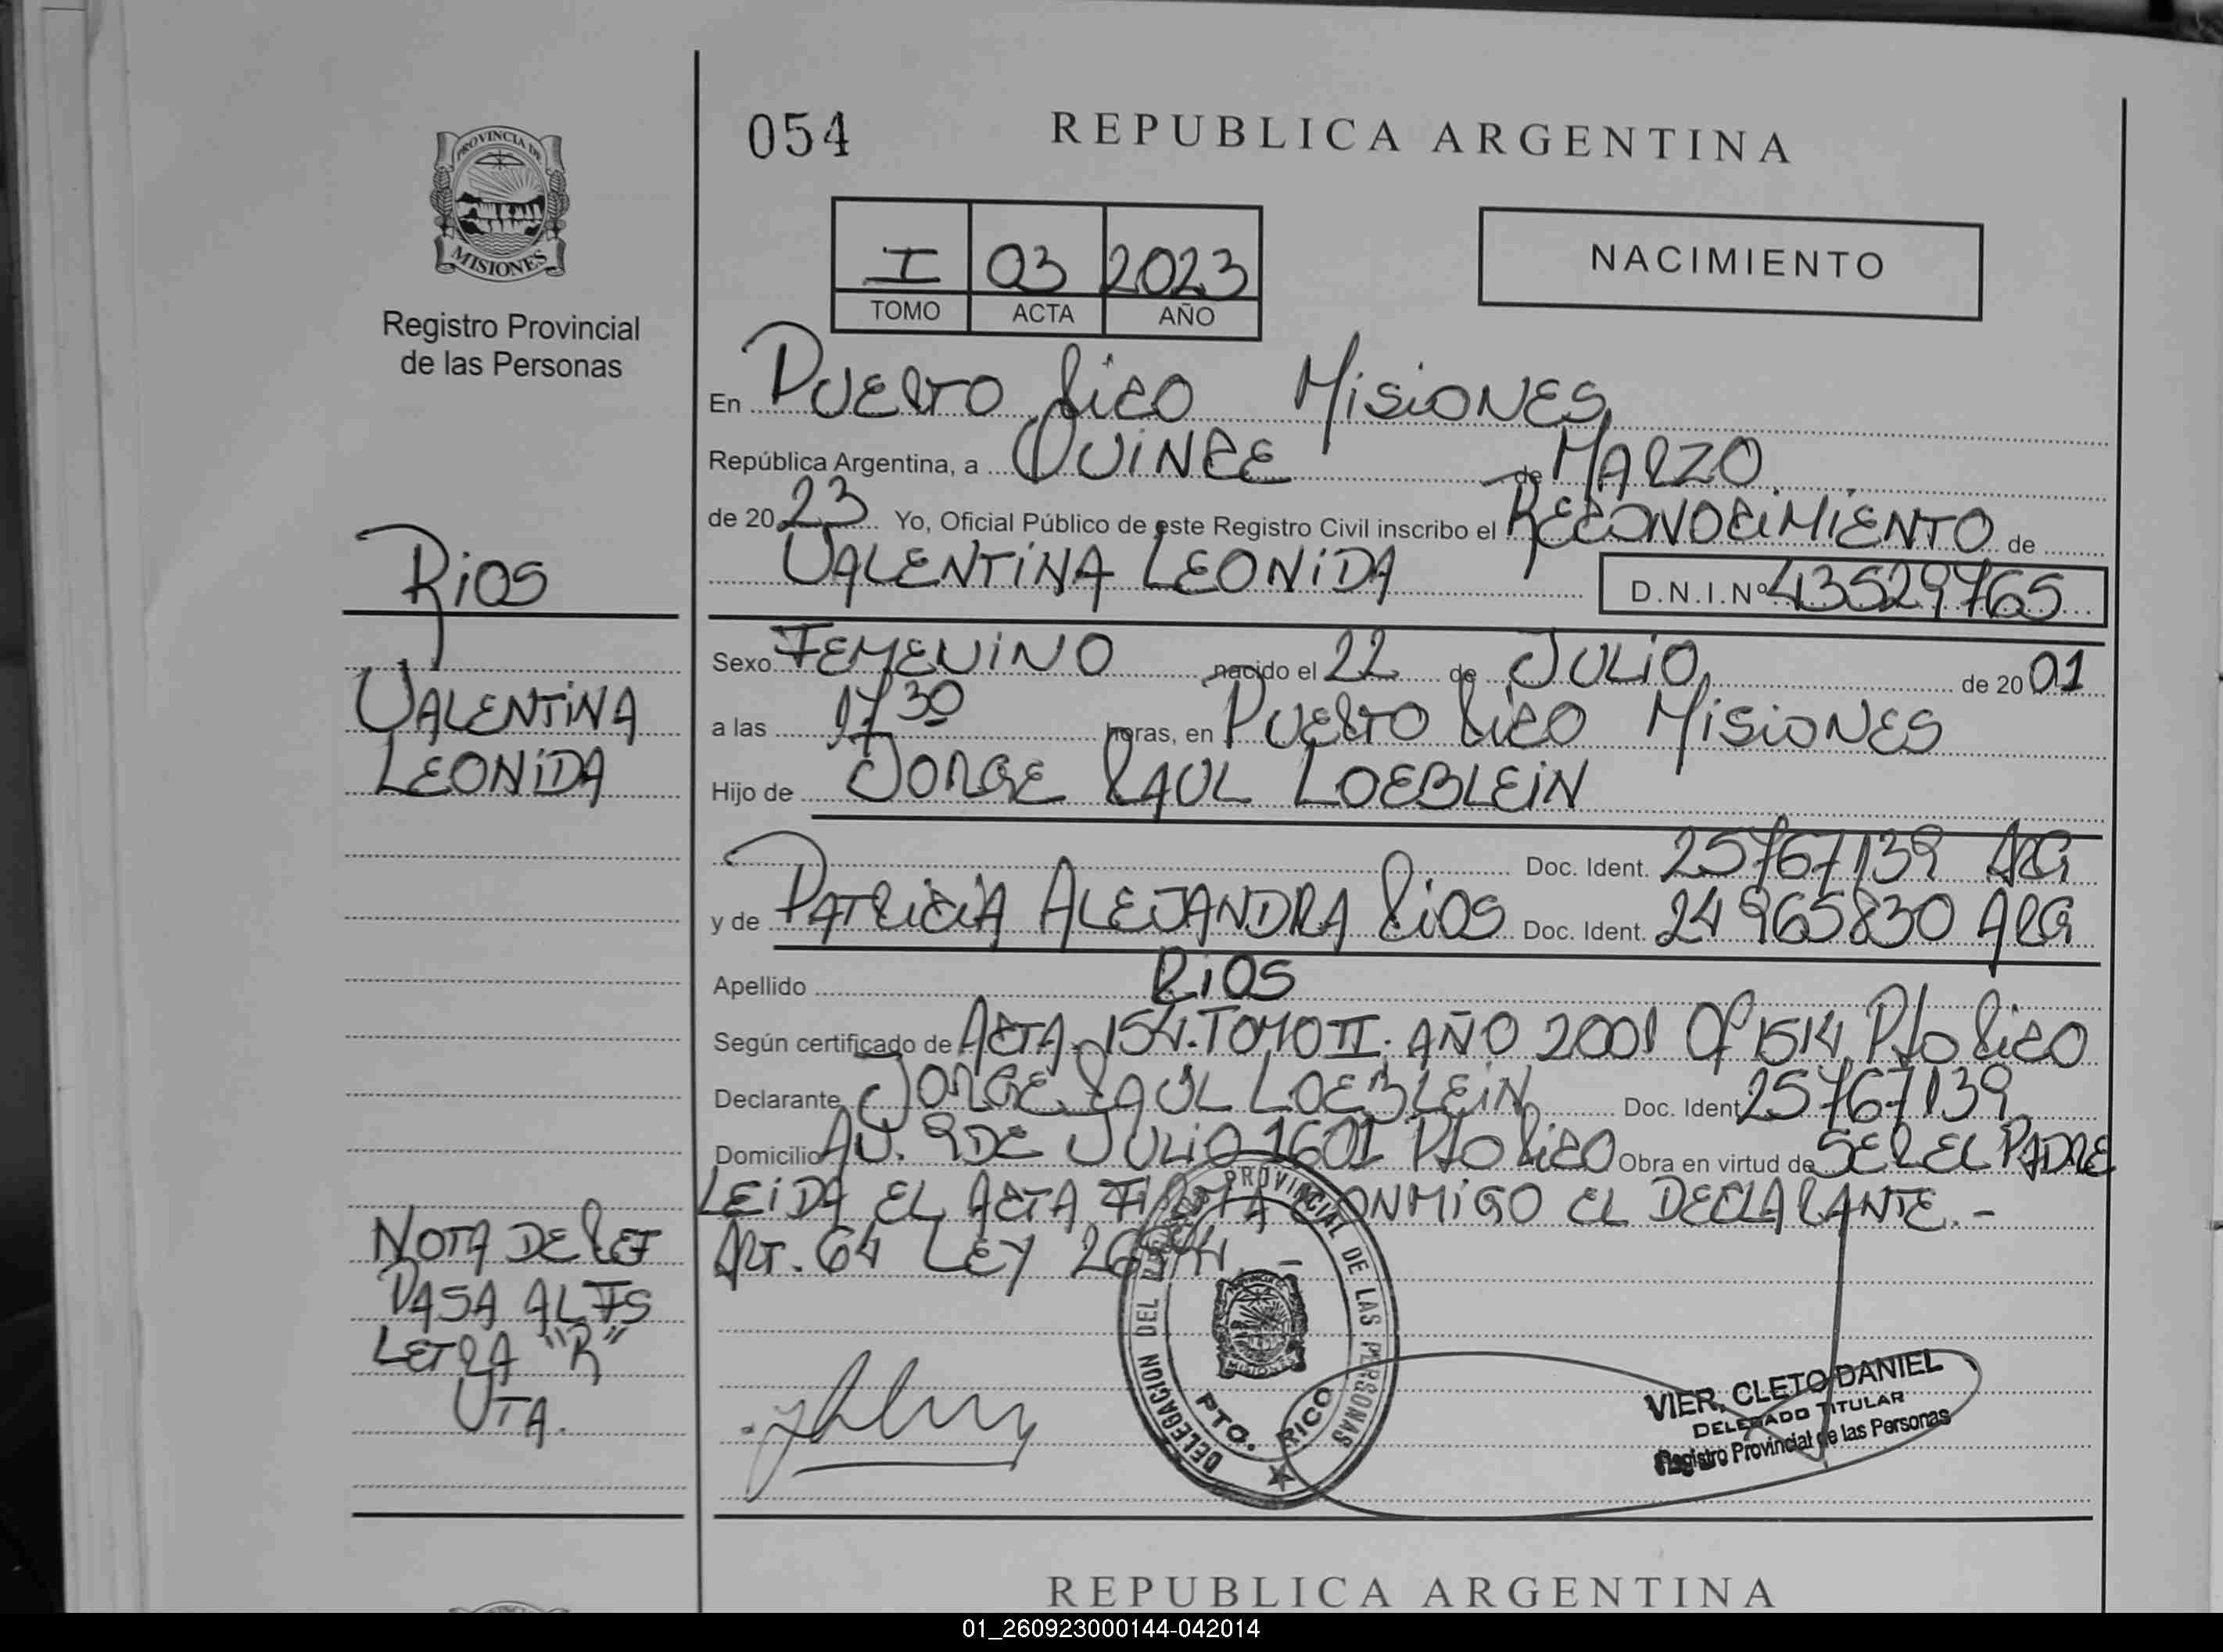 054
REPUBLICA ARGENTINA
PROVINCIA DE
MISIONES
Registro Provincial
de las Personas
I 03 2023
TOMO ACTA AÑO
NACIMIENTO
En Puerto Rico Misiones
República Argentina, a QUINCE de MARZO
de 2023 Yo, Oficial Público de este Registro Civil inscribo el RECONOCIMIENTO de
VALENTINA LEONIDA D.N.I.Nº 43529765
Rios
VALENTINA
LEONIDA
Sexo FEMENINO nacido el 22 de JULIO de 2001
a las 17 30 horas, en PUERTO Rico MISIONES
Hijo de JORGE RAUL LOEBLEIN
Doc. Ident. 25767139 ARG
y de PATRICIA ALEJANDRA RIOS Doc. Ident. 24965830 ARG
Apellido RIOS
Según certificado de ACTA 154. TOMO II. AÑO 2001 Of 1514 Pto Rico
Declarante JORGE RAUL LOEBLEIN Doc. Ident 25767139
Domicilio AV. 9 DE JULIO 1601 Pto Rico Obra en virtud de SER EL PADRE
LEIDA EL ACTA FIRMA CONMIGO EL DECLARANTE. -
ART. 64 LEY 26994. -
NOTA DE REF
PASA AL FS
LETRA "R"
VTA.
DELEGACION DEL REGISTRO PROVINCIAL DE LAS PERSONAS
MISIONES
PTO. RICO
VIER, CLETO DANIEL
DELEGADO TITULAR
Registro Provincial de las Personas
REPUBLICA ARGENTINA
01_260923000144-042014